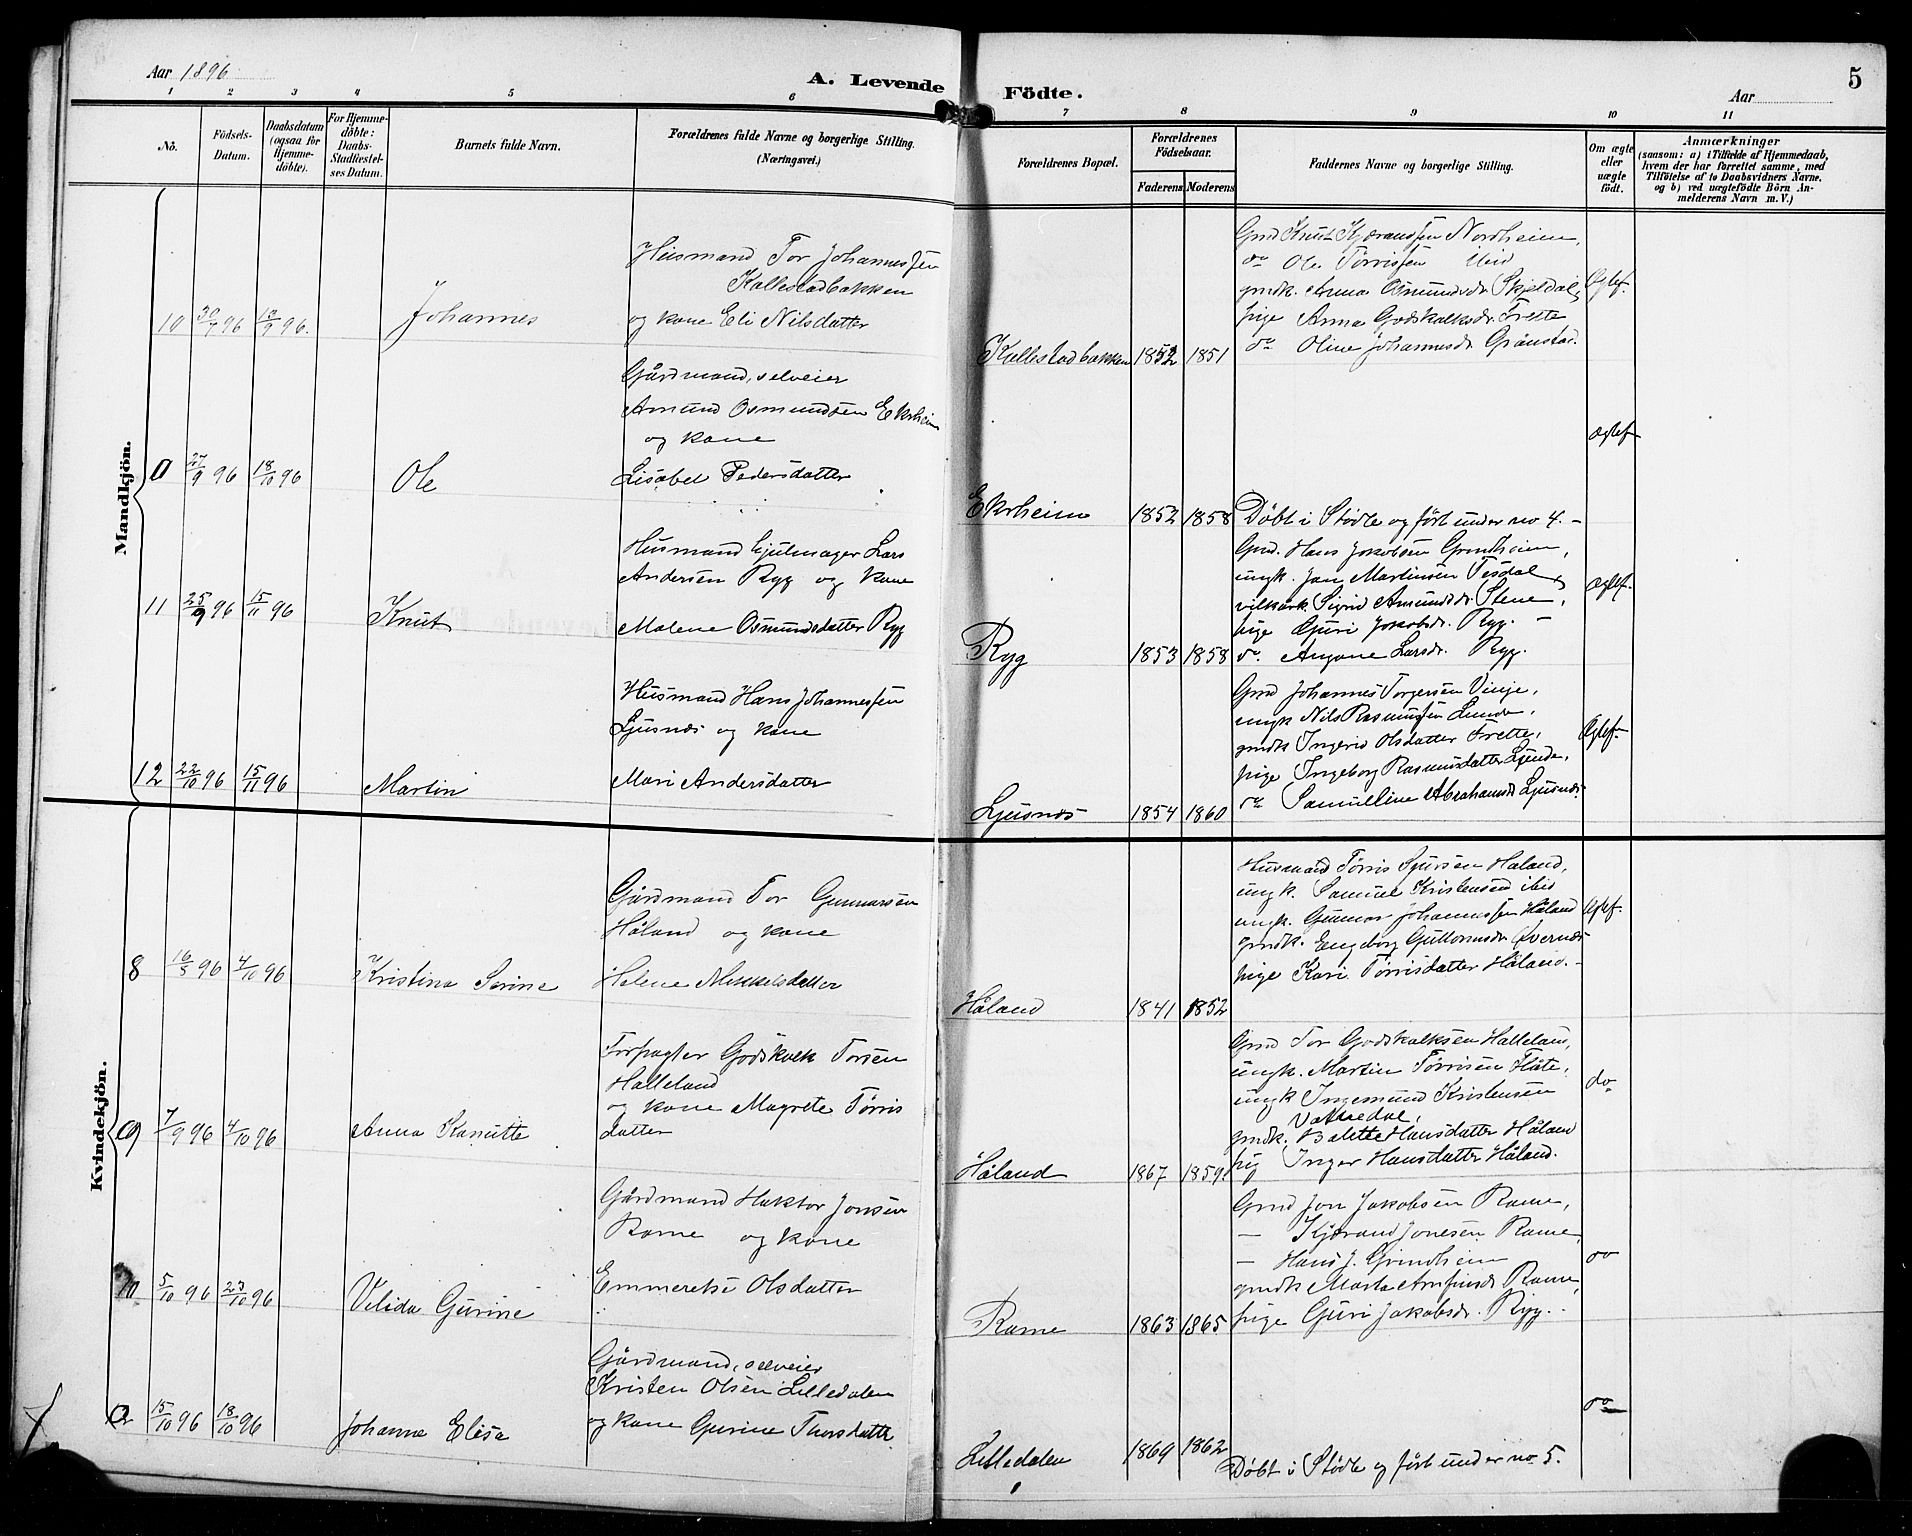 Aar 1896
A. Levende Födte.
Aar
5
1 2 3 4 5 6 7 8 9 10 11
No.
Födsels-
Datum.
Daabsdatum
(ogsaa for
Hjemme-
döbte).
For Hjemme-
döbte:
Daabs-
Stadfæstel-
ses Datum.
Barnets fulde Navn.
Forældrenes fulde Navne og borgerlige Stilling.
(Næringsvei.)
Forældrenes Bopæl.
Forældrenes
Födselsaar.
Faderens
Moderens
Faddernes Navne og borgerlige Stilling.
Om ægte
eller
uægte
födt.
Anmærkninger
(saasom: a) i Tilfælde af Hjemmedaab,
hvem der har forrettet samme, med
Tilföielse af to Daabsvidners Navne.
og b) ved uægtefödte Börn An-
melderens Navn m. V.)
Mandkjön.
10 30/7 96 13/9 96. Johannes
Husmand Tor Johannessen
Kallestadbakken
og kone Eli Nilsdatter
Kallestadbakken 1852 1851
Gmd Knut Kjærandsen Nordheim,
do Ole Tørrissen ibid
gmdk. Anna Osmundsdr. Skjeldal,
pige Anna Godskalksdr. Frette
do Oline Johannesdr. Grønstad.
Ægtef.
0 27/9 96 18/10 96 Ole
Gårdmand, selveier
Amund Osmundsen Ekrheim
og kone
Lisabel Pedersdatter
Ekrheim 1852 1858
Døbt i Stødle og ført under no 4. -
Ægtef
11 25/9 96 15/11 96 Knut
Husmand hjulmager Lars
Andersen Ryg og kone
Malene Osmundsdatter Ryg
Ryg 1853 1858
Gmd. Hans Jakobsen Grindheim,
ungk. Jan Martinsen Tesdal,
vilkårk. Sigrid Amundsdr. Stene,
pige Guri Jakobsdr. Ryg. -
do. Angane Larsdr. Ryg.
Ægtef.
12 22/10 96 15/11 96 Martin
Husmand Hans Johannessen
Ljusnæs og kone
Mari Andersdatter
Ljusnæs 1854 1860
Gmd Johannes Torgersen Vinje,
ungk Nils Rasmussen Lunde,
gmdk Ingerid Olsdatter Frette,
pige Ingeborg Rasmusdatter Lunde,
do Samueline Abrahamsdr Ljusnæs.
Ægtef.
Kvindekjön.
8 16/8 96 4/10 96 Kristina Serine
Gårdmand Tor Gunnarsen
Håland og kone
Helene Mikkelsdatter
Håland 1841 1852
Husmand Tørris Sjursen Håland,
ungk. Samuel Kristensen ibid
ungk. Gunnar Johannessen Håland
gmdk. Engeborg Guttormsdr. Kvernæs
pige Kari Tørrisdatter Håland. -
Ægtef.
9 7/9 96 4/10 96 Anna Kanutte
Forpagter Godskalk Torsen
Halleland
og kone Magrete Tørris
datter
Håland 1867 1859
Gmd Tor Godskalksen Halleland,
ungk. Martin Tørrisen Håte,
ungk Ingemund Kristensen
Vattedal,
gmdk. Balette Hansdatter Håland
pig Inger Hansdatter Håland.
do
10 5/10 96 23/10 96 Velida Gurine
Gårdmand Haktor Jonsen
Rame og kone
Emmerekse Olsdatter
Rame 1863 1865
Gmd Jon Jakobsen Rame,
- Kjærand Jonesen Rame,
- Hans J. Grindheim
gmdk Marta Arnfinsdr Rame,
pige Guri Jakobsdr. Ryg. -
do
0 15/10 96 18/10 96 Johanne Elisa
Gårdmand, selveier
Kristen Olsen Lilledalen
og kone Gurine Thorsdatter
Lilledalen 1869 1862
Døbt i Stødle og ført under no 5.
do